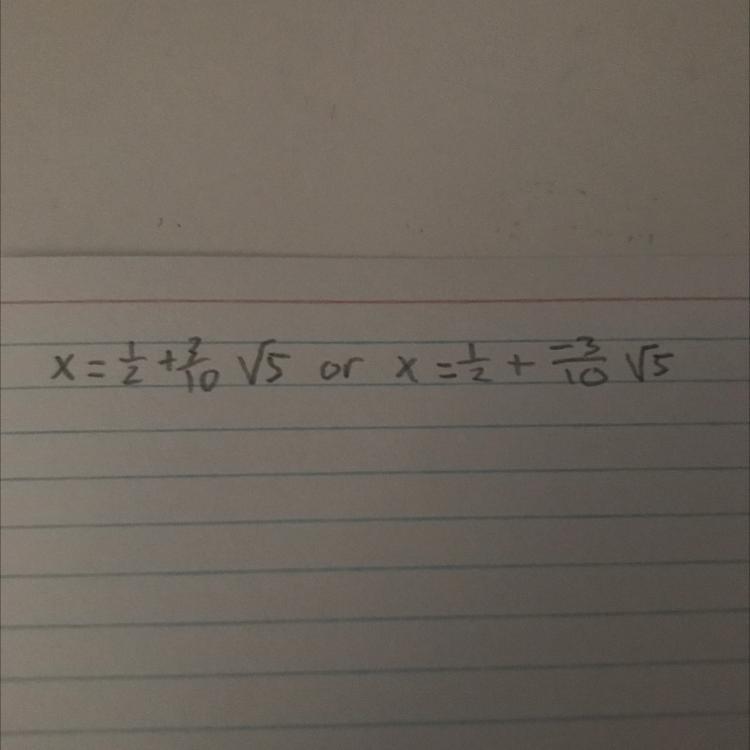 x = 1/2 + 3/10 √5 or x = 1/2 + -3/10 √5